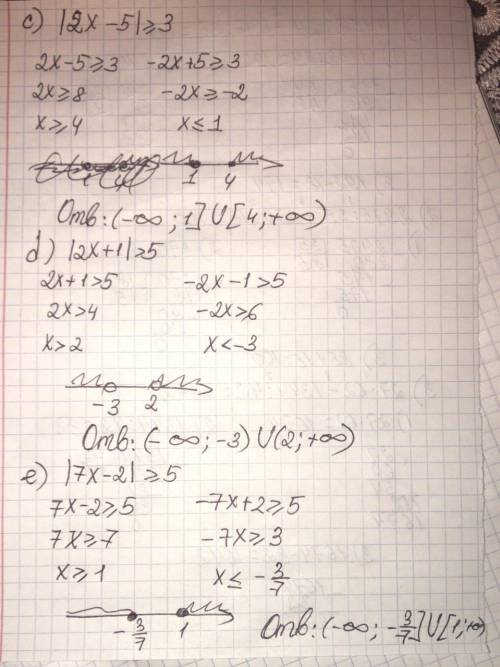 c) |2x-5|≥3
2x-5≥3   -2x+5≥3
2x≥8   -2x≥-2
x≥4   x≤1
1   4
Отв: (-∞; 1] U [4; +∞)
d) |2x+1|>5
2x+1>5   -2x-1>5
2x>4   -2x>6
x>2   x<-3
-3   2
Отв: (-∞; -3) U (2; +∞)
e) |7x-2|≥5
7x-2≥5   -7x+2≥5
7x≥7   -7x≥3
x≥1   x≤ -3/7
-3/7   1   Отв: (-∞; -3/7] U [1; +∞